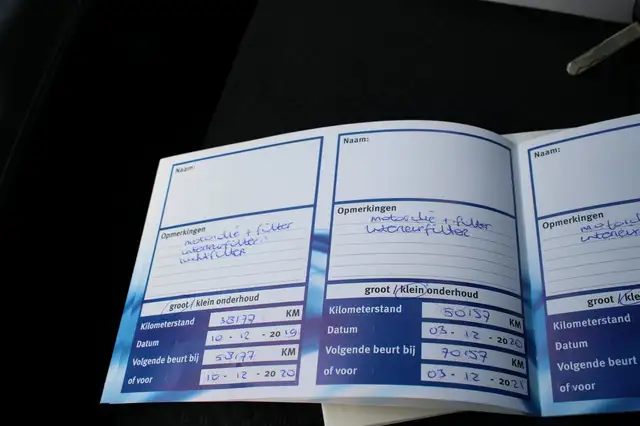 Naam:
Opmerkingen
motorolie + filter
interieurfilter
luchtfilter
groot / klein onderhoud
Kilometerstand
KM
Datum
10 - 12 - 2019
Volgende beurt bij
KM
of voor
10 - 12 - 2020
Naam:
Opmerkingen
motorolie + filter
interieurfilter
groot / klein onderhoud
Kilometerstand
50157 KM
Datum
03 - 12 - 2020
Volgende beurt bij
70157 KM
of voor
03 - 12 - 2021
Naam:
Opmerkingen
groot / kle
Kilometerstand
Datum
Volgende beurt bij
of voor